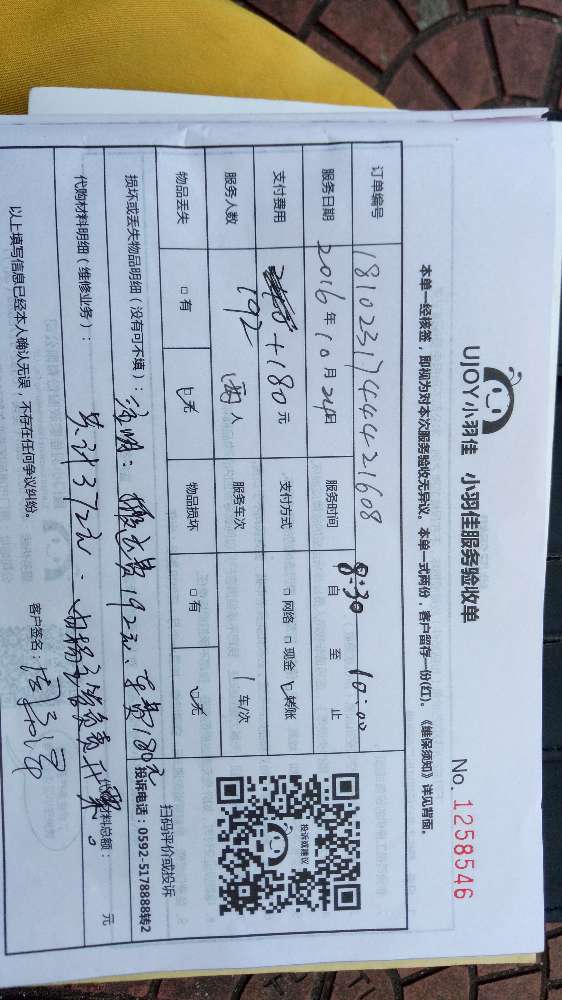 UJOY小羽佳 小羽佳服务验收单
No. 1258546
本单一经核签，即视为对本次服务验收无异议。本单一式两份，客户留存一份(红)。《维保须知》详见背面。
订单编号 1810231744421608
服务日期 2016年10月24日 服务时间 自 8:30 至 10:00 止
支付费用 192+180元 支付方式 □网络 □现金 ☑转账
服务人数 两人 服务车次 1 车/次
物品丢失 □有 ☑无 物品损坏 □有 ☑无
投诉或建议
扫码评价或投诉
投诉电话：0592-5178888转2
损坏或丢失物品明细（没有可不填）：注明：搬运费192元、车费180元
代购材料明细（维修业务）：共计372元．由杨主管负责开票。
代购材料总额： 元
以上填写信息已经本人确认无误，不存在任何争议纠纷。
客户签名：